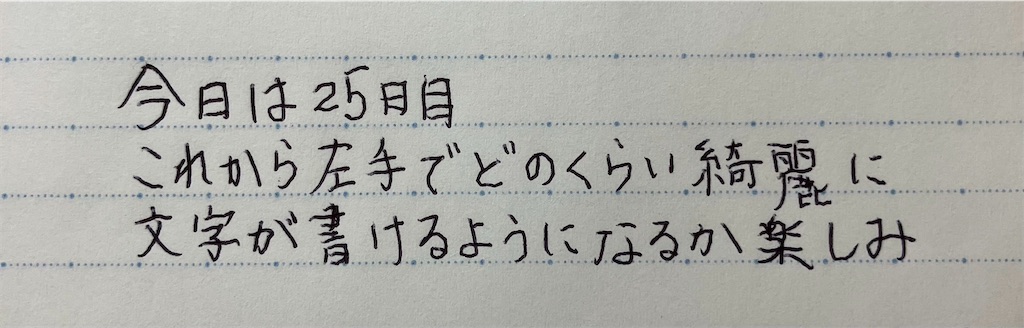 今日は25日目
これから左手でどのくらい綺麗に
文字が書けるようになるか楽しみ